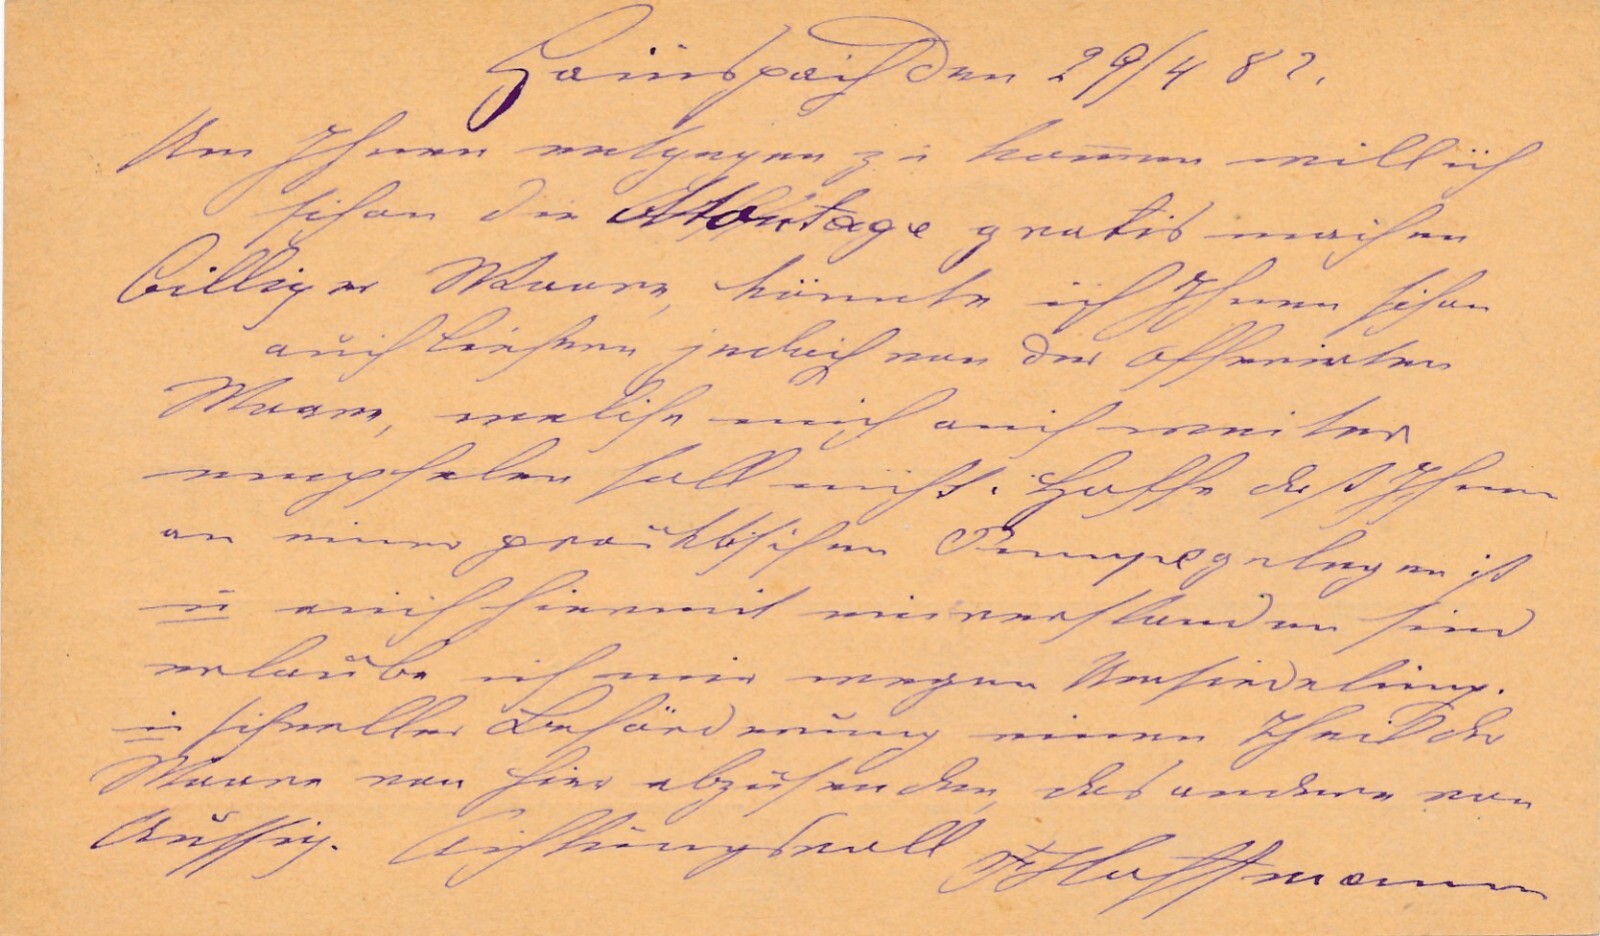 Hainspach den 29/4 82.
Um Ihnen entgegen zu kom̄en will ich
schon die Montage gratis machen
billiger Waare, könnte ich Ihnen schon
auch liefern jedoch von der offerirten
Waare, welche mich auch weiter
empfelen soll nicht. Hoffe daß Ihnen
an einer Pumpe gelegen ist
u mich hiermit einverstanden sind
erlaube ich mir wegen
u schneller Beförderung einen Theil der
Waare von hier abzusenden, das andere von
Aussig. Achtungsvoll FHoffmann